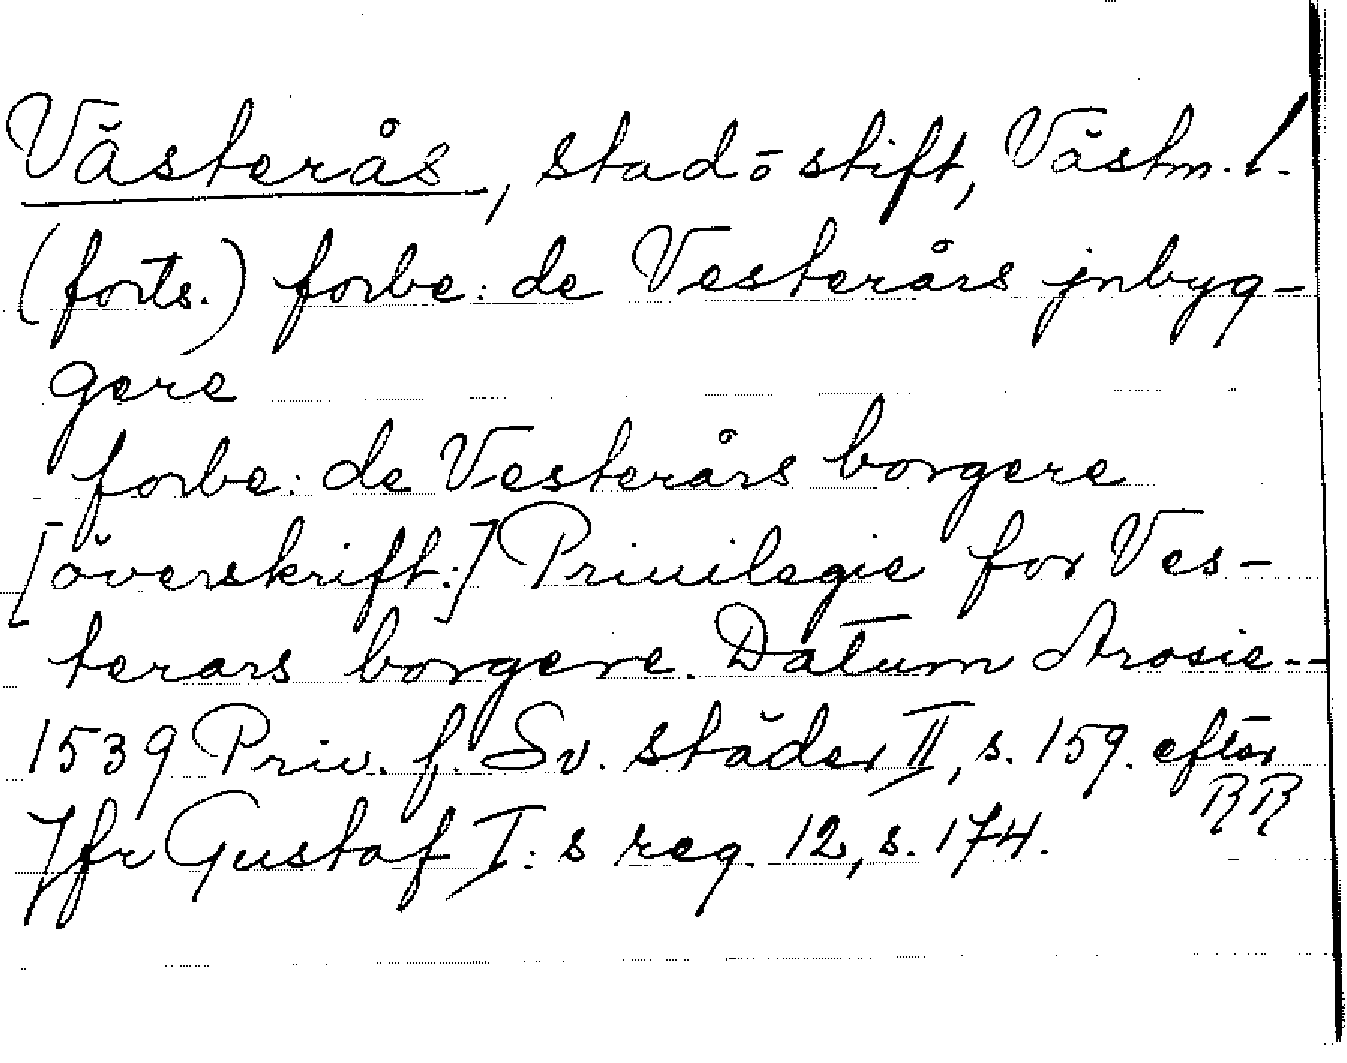 Västerås, stad o stift, Västm. l.
(forts.) forbe: de Vesterårs jnbyg-
gere
forbe: de Vesterårs borgere
[överskrift:] Priuilegie for Ves-
terars borgere. Datum Arosie--
1539 Priv. f. Sv. städer II, s. 159. efter
RR
Jfr Gustaf I:s reg. 12, s. 174.